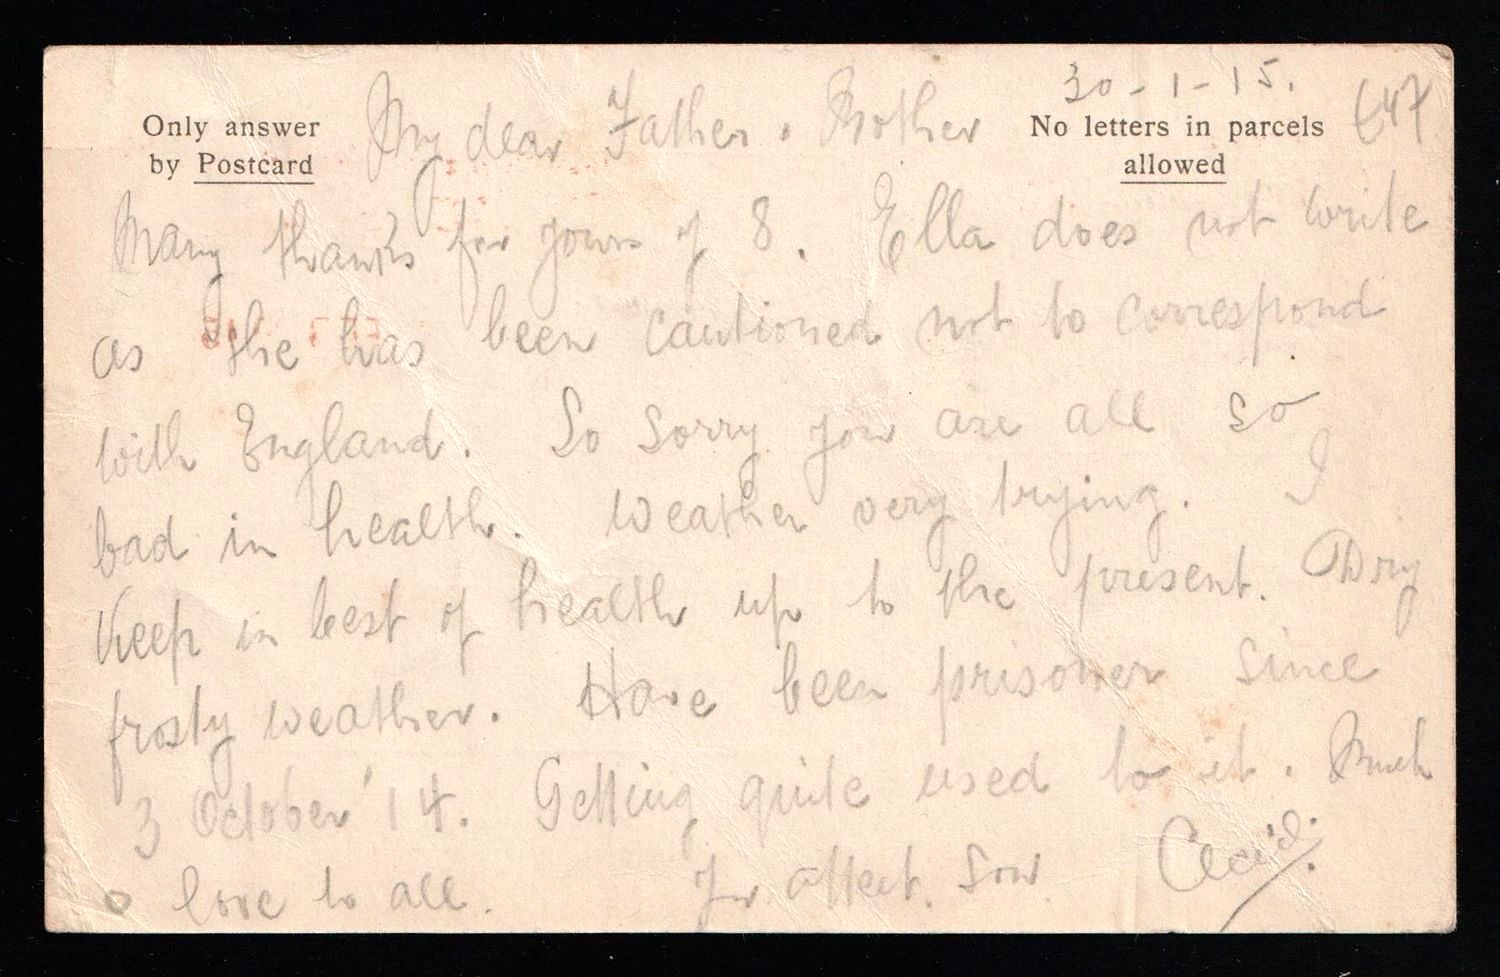 30-1-15.
Only answer
by Postcard
My dear Father & Mother
No letters in parcels
allowed
Many thanks for yours of 8. Ella does not write
as she has been cautioned not to correspond
with England. So sorry you are all so
bad in health. Weather very trying. I
Keep in best of health up to the present. Dry
frosty weather. Have been prisoner since
3 October '14. Getting quite used to it. Much
love to all. Yr. affect. Son Cecil.